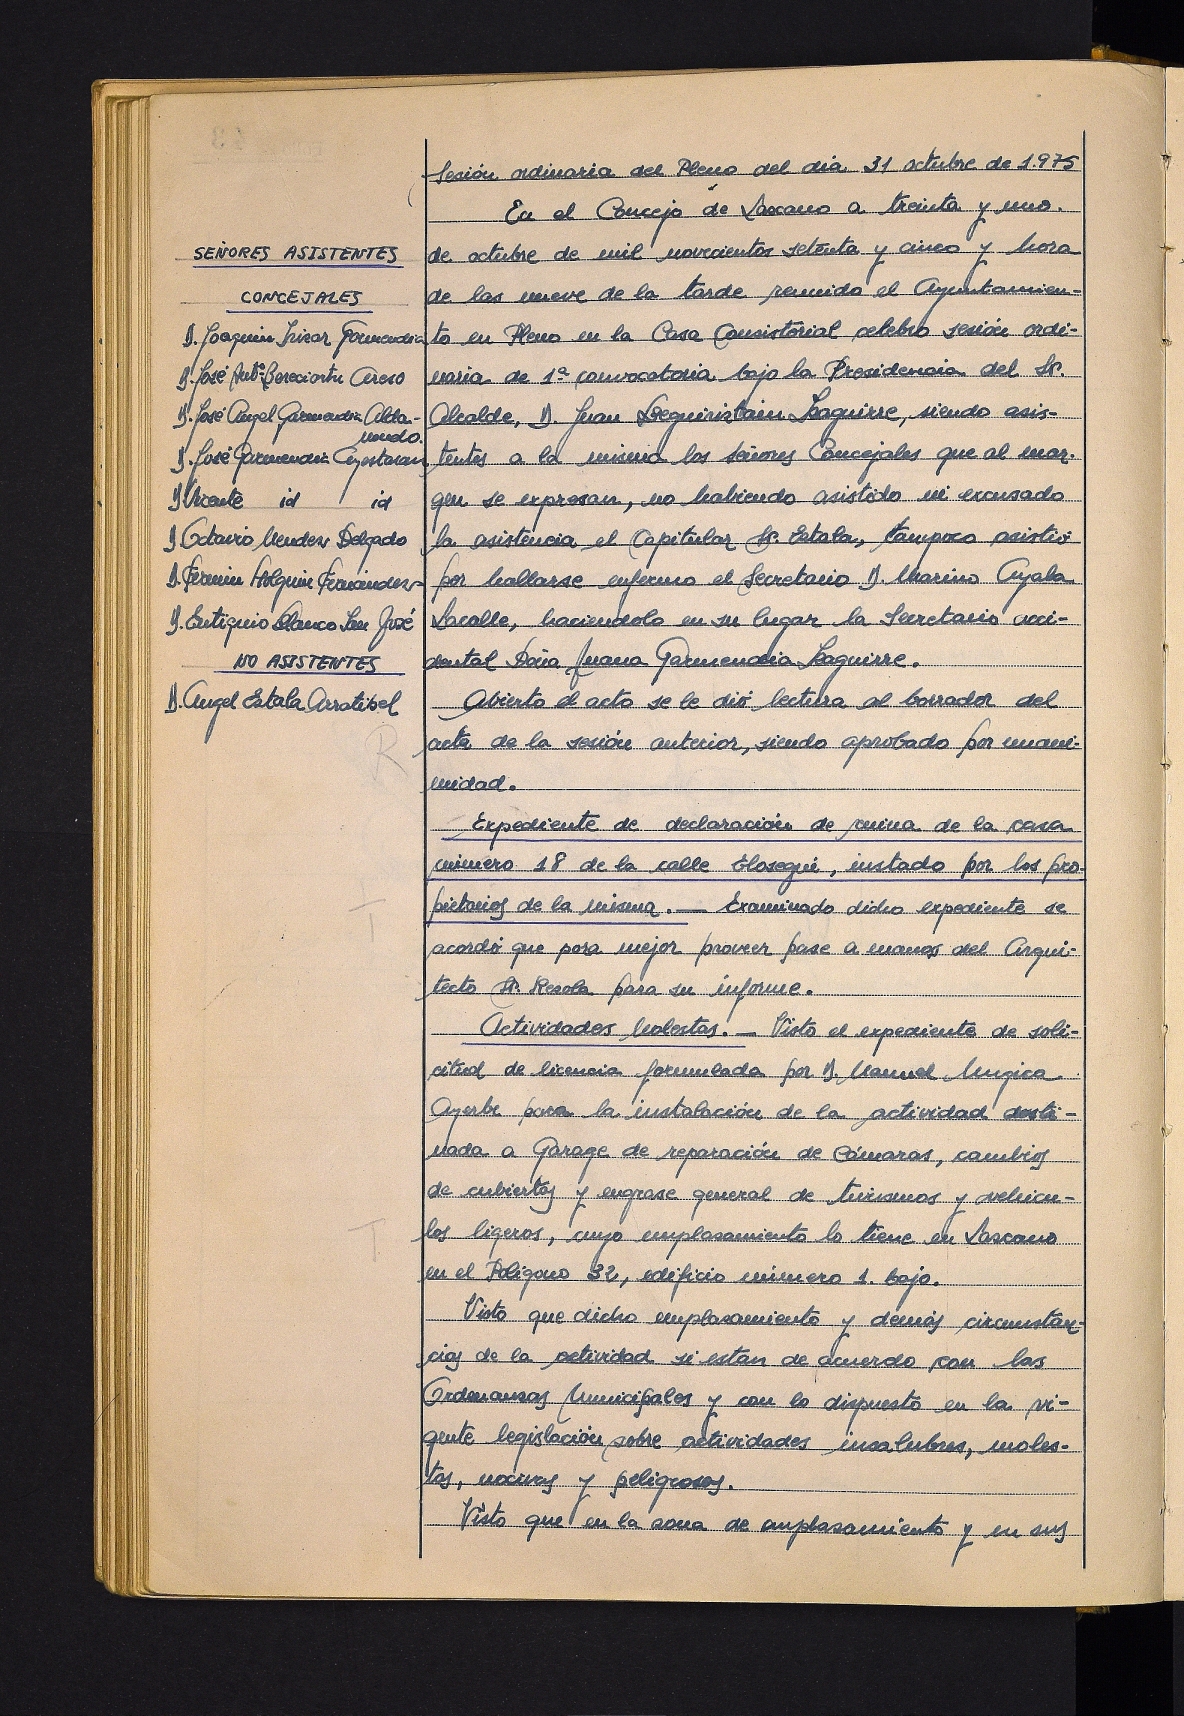 Sesión ordinaria del Pleno del dia 31 octubre de 1.975
En el Concejo de Lazcano a treinta y uno.
SEÑORES ASISTENTES
CONCEJALES
D. Joaquin Irizar Garmendia
D. José Antº Bereciartu Areso
D. José Angel Garmendia Alda-
mundo.
D. José Garmendia Ayestaran
D. Vicente id id
D. Octavio Mendez Delgado
D. Fermin Holguin Fernandez
D. Eutiquio Blanco San José
NO ASISTENTES
D. Angel Estala Arratibel
de octubre de mil novecientos setenta y cinco y hora
de las nueve de la tarde reunido el Ayuntamien-
to en Pleno en la Casa Consistorial celebro sesión ordi-
naria de 1ª convocatoria bajo la Presidencia del Sr.
Alcalde, D. Juan Iseguiristain Izaguirre, siendo asis-
tentes a la misma los señores Concejales que al mar-
gen se expresan, no habiendo asistido ni excusado
la asistencia el Capitular Sr. Estala, tampoco asistió
por hallarse enfermo el Secretario D. Marino Ayala
Lacalle, haciendolo en su lugar la Secretario acci-
dental Doña Juana Garmendia Izaguirre.
Abierto el acto se le dió lectura al borrador del
acta de la sesión anterior, siendo aprobado por unani-
midad.
Expediente de declaración de ruina de la casa
número 18 de la calle Elosegui, instado por los pro-
pietarios de la misma. — Examinado dicho expediente se
acordó que para mejor proveer pase a manos del Arqui-
tecto Sr. Rezola para su informe.
Actividades Molestas. — Visto el expediente de soli-
citud de licencia formulada por D. Manuel Mugica
Ayerbe para la instalación de la actividad desti-
nada a Garage de reparación de Cámaras, cambios
de cubiertas y engrase general de turismos y vehicu-
los ligeros, cuyo emplazamiento lo tiene en Lazcano
en el Poligono 32, edificio número 1. bajo.
Visto que dicho emplazamiento y demás circunstan-
cias de la actividad si estan de acuerdo con las
Ordenanzas Municipales y con lo dispuesto en la vi-
gente legislación sobre actividades insalubres, moles-
tas, nocivas y peligrosas.
Visto que en la zona de emplazamiento y en sus